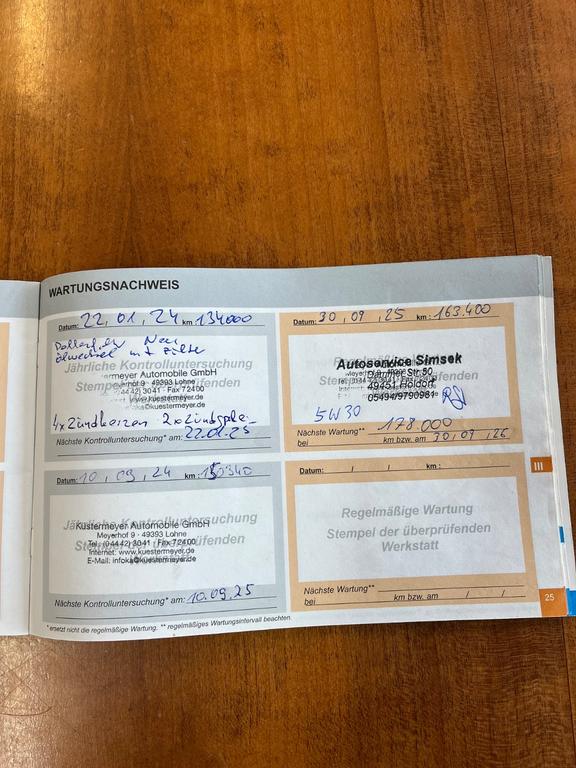 WARTUNGSNACHWEIS
Datum: 22, 01, 24 km 134000
Pollenfilter Neu
Ölwechsel mit Filter
Jährliche Kontrolluntersuchung
Stempel der überprüfenden
Küstermeyer Automobile GmbH
Meyerhof 9 · 49393 Lohne
Tel. (04442) 3041 · Fax 72400
www.kuestermeyer.de
@kuestermeyer.de
4x Zündkerzen 2x Zündspule
Nächste Kontrolluntersuchung* am: 22.01.25
Datum: 10, 09, 24 km: 150340
Jährliche Kontrolluntersuchung
Stempel der überprüfenden
Küstermeyer Automobile GmbH
Meyerhof 9 · 49393 Lohne
Tel. (04442) 3041 · Fax 72400
Internet: www.kuestermeyer.de
E-Mail: @kuestermeyer.de
Nächste Kontrolluntersuchung* am: 10.09.25
* ersetzt nicht die regelmäßige Wartung. ** regelmäßiges Wartungsintervall beachten.
Datum: 30, 09, 25 km: 163.400
Regelmäßige Wartung
Stempel der überprüfenden
Autoservice Simsek
Str. 50
49451 Holdorf
05494/9790981
5W30
Nächste Wartung** 178.000
bei km bzw. am 30, 09, 26
Datum: / / km:
Regelmäßige Wartung
Stempel der überprüfenden
Werkstatt
Nächste Wartung**
bei km bzw. am / /
III
25